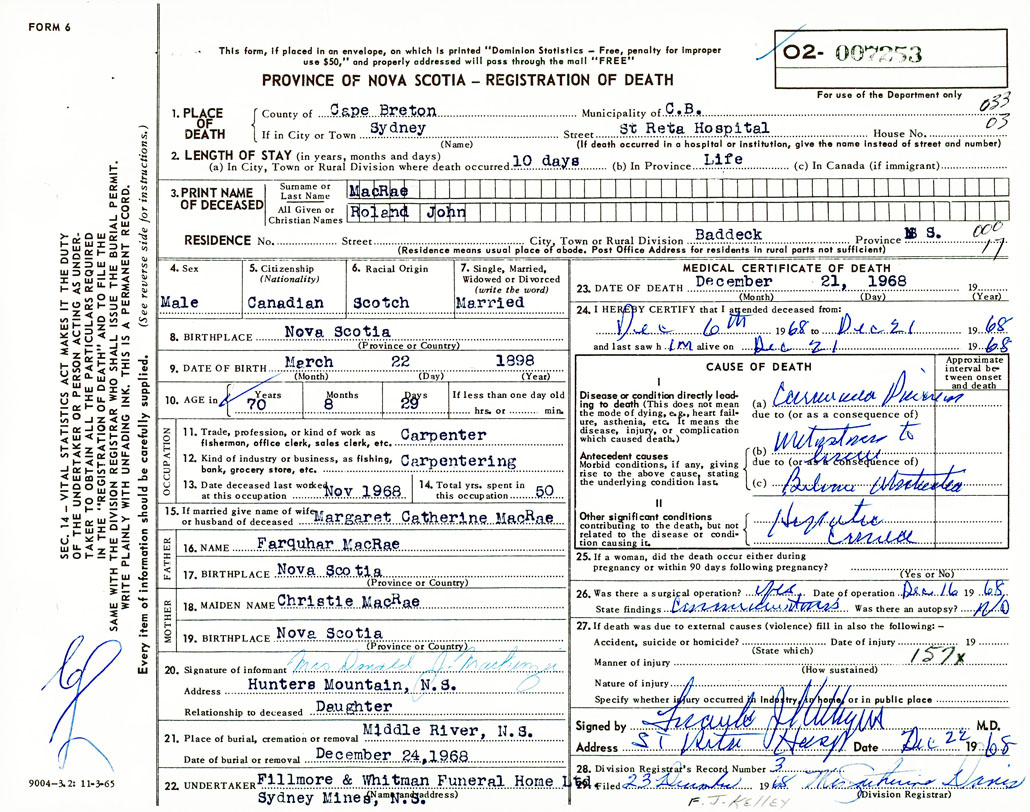 FORM 6
This form, if placed in an envelope, on which is printed "Dominion Statistics – Free, penalty for improper
use $50," and properly addressed will pass through the mail "FREE"
PROVINCE OF NOVA SCOTIA – REGISTRATION OF DEATH
O2- 007253
For use of the Department only
033
03
1. PLACE OF DEATH
County of Cape Breton Municipality of C.B.
If in City or Town Sydney Street St Reta Hospital House No.
(Name) (If death occurred in a hospital or institution, give the name instead of street and number)
2. LENGTH OF STAY (in years, months and days)
(a) In City, Town or Rural Division where death occurred 10 days (b) In Province Life (c) In Canada (if immigrant)
3. PRINT NAME OF DECEASED
Surname or Last Name MacRae
All Given or Christian Names Roland John
RESIDENCE No. Street City, Town or Rural Division Baddeck Province N S.
(Residence means usual place of abode. Post Office Address for residents in rural parts not sufficient)
000
17
SEC. 14 – VITAL STATISTICS ACT MAKES IT THE DUTY
OF THE UNDERTAKER OR PERSON ACTING AS UNDER-
TAKER TO OBTAIN ALL THE PARTICULARS REQUIRED
IN THE "REGISTRATION OF DEATH" AND TO FILE THE
SAME WITH THE DIVISION REGISTRAR WHO SHALL ISSUE THE BURIAL PERMIT.
WRITE PLAINLY WITH UNFADING INK. THIS IS A PERMANENT RECORD.
Every item of information should be carefully supplied. (See reverse side for instructions.)
4. Sex
Male
5. Citizenship
(Nationality)
Canadian
6. Racial Origin
Scotch
7. Single, Married,
Widowed or Divorced
(write the word)
Married
8. BIRTHPLACE Nova Scotia
(Province or Country)
9. DATE OF BIRTH March 22 1898
(Month) (Day) (Year)
10. AGE in Years Months Days If less than one day old
70 8 29 hrs. or min.
OCCUPATION
11. Trade, profession, or kind of work as
fisherman, office clerk, sales clerk, etc. Carpenter
12. Kind of industry or business, as fishing,
bank, grocery store, etc. Carpentering
13. Date deceased last worked
at this occupation Nov 1968
14. Total yrs. spent in
this occupation 50
15. If married give name of wife
or husband of deceased Margaret Catherine MacRae
FATHER
16. NAME Farquhar MacRae
17. BIRTHPLACE Nova Scotia
(Province or Country)
MOTHER
18. MAIDEN NAME Christie MacRae
19. BIRTHPLACE Nova Scotia
(Province or Country)
20. Signature of informant Mrs Donald J. MacKenzie
Address Hunters Mountain, N.S.
Relationship to deceased Daughter
21. Place of burial, cremation or removal Middle River, N.S.
Date of burial or removal December 24,1968
22. UNDERTAKER Fillmore & Whitman Funeral Home Ltd.
Sydney Mines, N.S.
(Name and address)
9004-3.2: 11-3-65
MEDICAL CERTIFICATE OF DEATH
23. DATE OF DEATH December 21, 1968 19
(Month) (Day) (Year)
24. I HEREBY CERTIFY that I attended deceased from:
Dec 6th 1968 to Dec 21 19 68
and last saw h im alive on Dec 21 19 68
CAUSE OF DEATH
Approximate
interval be-
tween onset
and death
I
Disease or condition directly lead-
ing to death (This does not mean
the mode of dying, e.g., heart fail-
ure, asthenia, etc. It means the
disease, injury, or complication
which caused death.)
(a)
due to (or as a consequence of)
Antecedent causes
Morbid conditions, if any, giving
rise to the above cause, stating
the underlying condition last.
(b) Metastases to
due to (or as a consequence of)
(c)
II
Other significant conditions
contributing to the death, but not
related to the disease or condi-
tion causing it.
Hepatic
25. If a woman, did the death occur either during
pregnancy or within 90 days following pregnancy?
(Yes or No)
26. Was there a surgical operation? yes Date of operation Dec 16 19 68
State findings Was there an autopsy? NO
27. If death was due to external causes (violence) fill in also the following:–
Accident, suicide or homicide? Date of injury 19
(State which)
157x
Manner of injury
(How sustained)
Nature of injury
Specify whether injury occurred in industry, in home, or in public place
Signed by M.D.
Address St Rita Hosp Date Dec 22 19 68
28. Division Registrar's Record Number 3
29. Filed 23 December 1968
(Division Registrar)
F. J. KELLEY